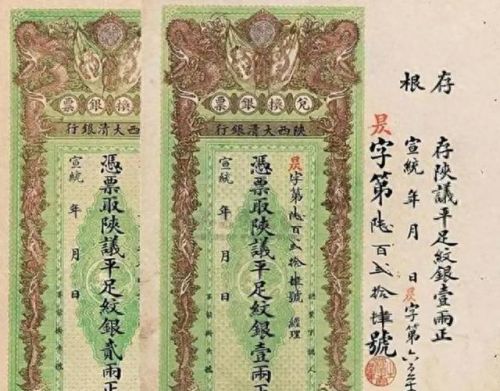 存根
存陝議平足紋銀壹兩正
宣統 年 月 日 昃字第六百二十
昃字第陸百弍拾肆號
兌換銀票
陝西大清銀行
昃字第陸百弍拾肆號 經理
憑票取陝議平足紋銀壹兩正
宣統 年 月 日
換銀票
西大清銀行
憑票取陝議平足紋銀貳兩正
宣統 年 月 日